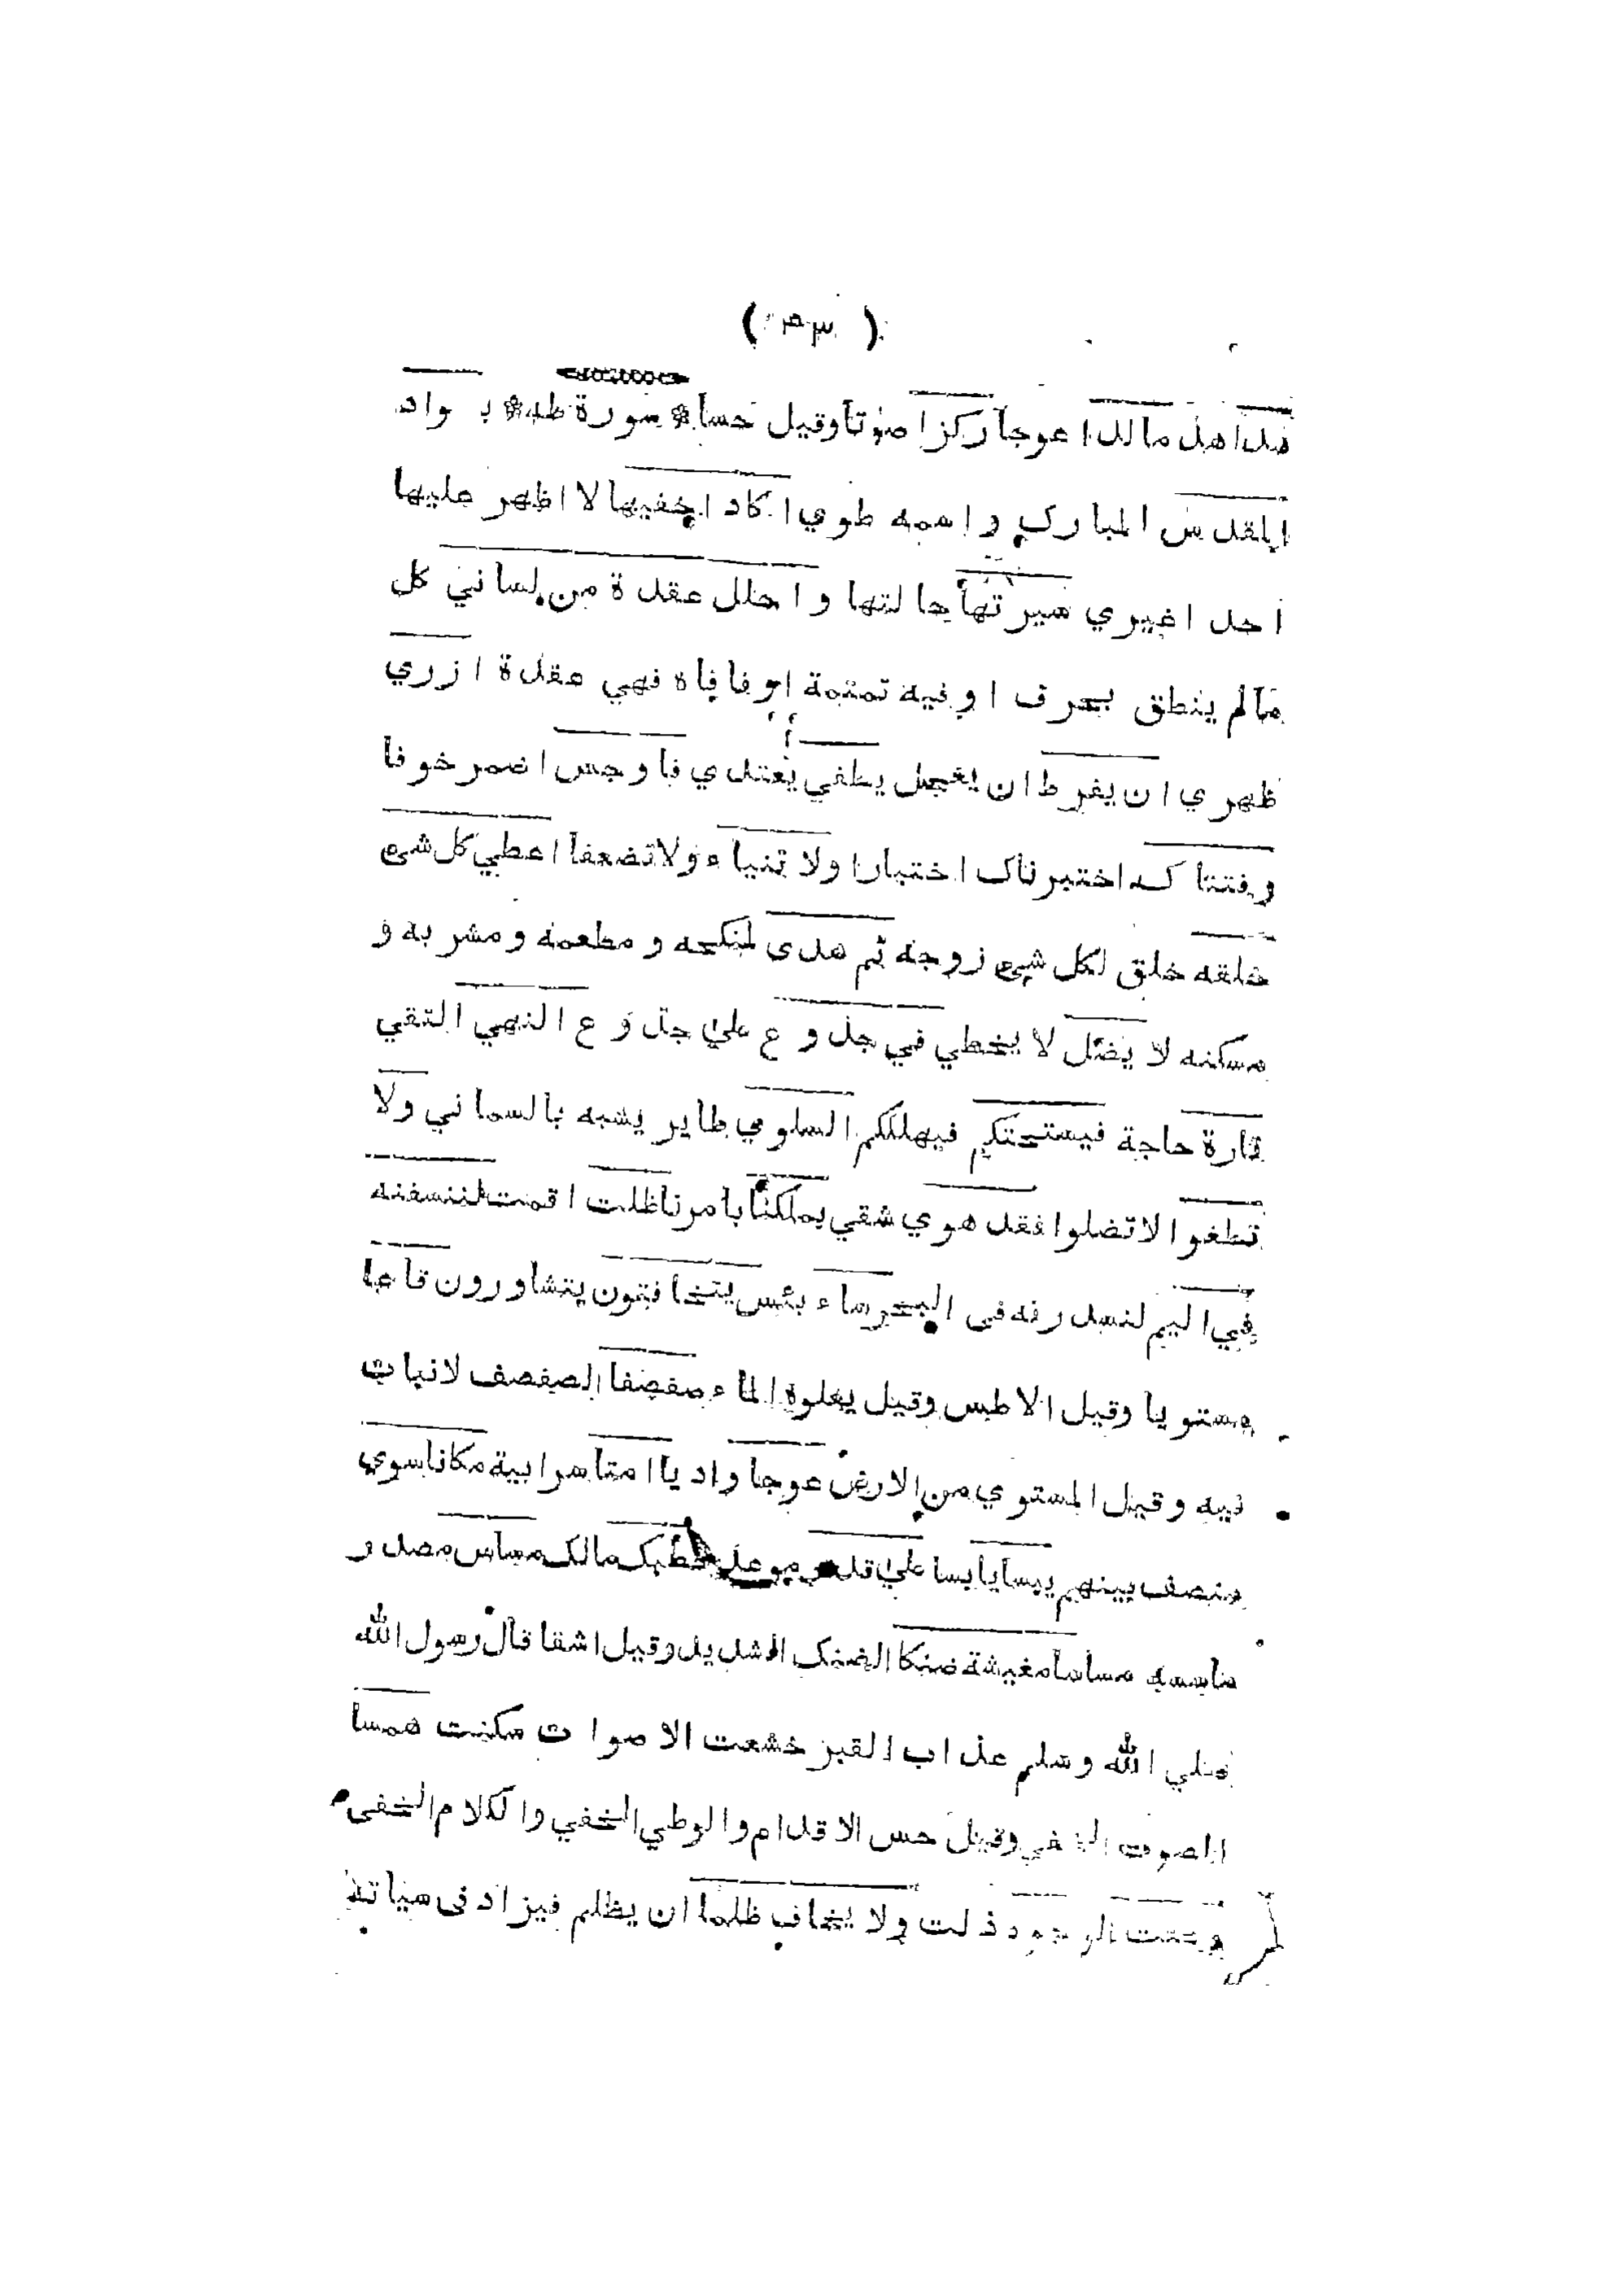 هدا هدما لدا عوجا ركزا صوتا وقيل حسا * سورة طه * بواد
المقدس المبارك واسمه طوي اكاد اخفيها لا اظهر عليها
احد اغيري سيرتها حالتها واحلل عقدة من لساني كل
مالم ينطق بحرف اوفيه تمتمة اوفافاه فهي عقدة ازري
ظهري ان يفرط ان يعجل يطغي يعتدي فاوجس اضمر خوفا
وفتناك اختبرناك اختبارا ولا تنياء ولا تضعفا اعطي كل شيء
خلقه خلق لكل شيء زوجه ثم هدى لمنكحه ومطعمه ومشربه و
مسكنه لا يضل لا يخطي في جذوع علي جذوع النهي التقي
تارة حاجة فيستحتكم فيهلككم السلوي طاير يشبه بالسماني ولا
تطغوا لا تضلوا فقد هوي شقي بملكنا بامرنا ظلت اقمت لننسفنه
في اليم لنذرفه في البحر ساء بئس يتخافتون يتشاورون قاعا
مستويا وقيل الاطس وقيل يعلوه الماء صفصفا الصفصف لا نبات
فيه وقيل المستوي من الارض عوجا واديا امتا رابية مكانا سوي
منصف بينهم يبسا يابسا علي قدر موعد خطبك مالك مساس مصدر
ماسسه مساسا معيشة ضنكا الضنك الشديد وقيل اشقا قال رسول الله
صلي الله وسلم عذاب القبر خشعت الاصوات سكنت همسا
الصوت الخفي وقيل حس الاقدام والوطي الخفي والكلام الخفى
وعنت الوجوه ذلت ولا يخاف ظلما ان يظلم فيزاد فى سياته